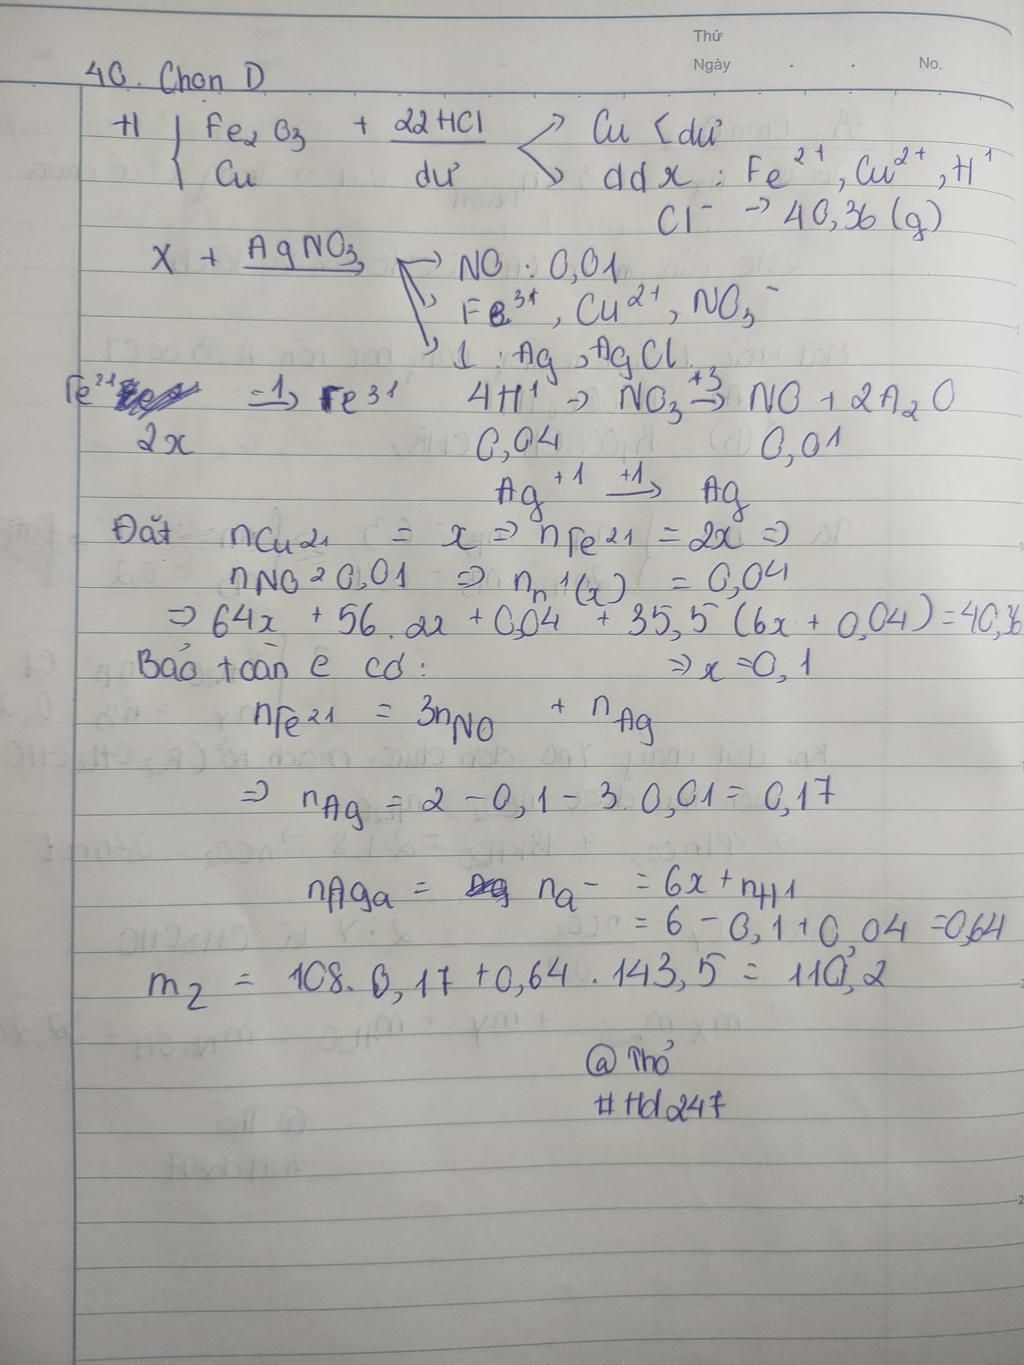 Thứ
Ngày . . No.
40. Chọn D
H { Fe2O3 + 22HCl → Cu dư
Cu dư → dd X : Fe2+, Cu2+, H+
Cl- → 40,36 (g)
X + AgNO3 → NO : 0,01
Fe3+, Cu2+, NO3-
↓ : Ag, AgCl
Fe2+ -1→ Fe3+ 4H+ → NO3 +3→ NO + 2H2O
2x 0,04 0,01
Ag+1 +1→ Ag
Đặt nCu2+ = x => nFe2+ = 2x =>
nNO = 0,01 => nH+(X) = 0,04
=> 64x + 56.2x + 0,04 + 35,5 (6x + 0,04) = 40,36
Bảo toàn e có: => x = 0,1
nFe2+ = 3nNO + nAg
=> nAg = 2 - 0,1 - 3.0,01 = 0,17
nAgCl = nCl- = 6x + nH+
= 6 - 0,1 + 0,04 = 0,64
m2 = 108.0,17 + 0,64.143,5 = 110,2
@Thỏ
#Hd247